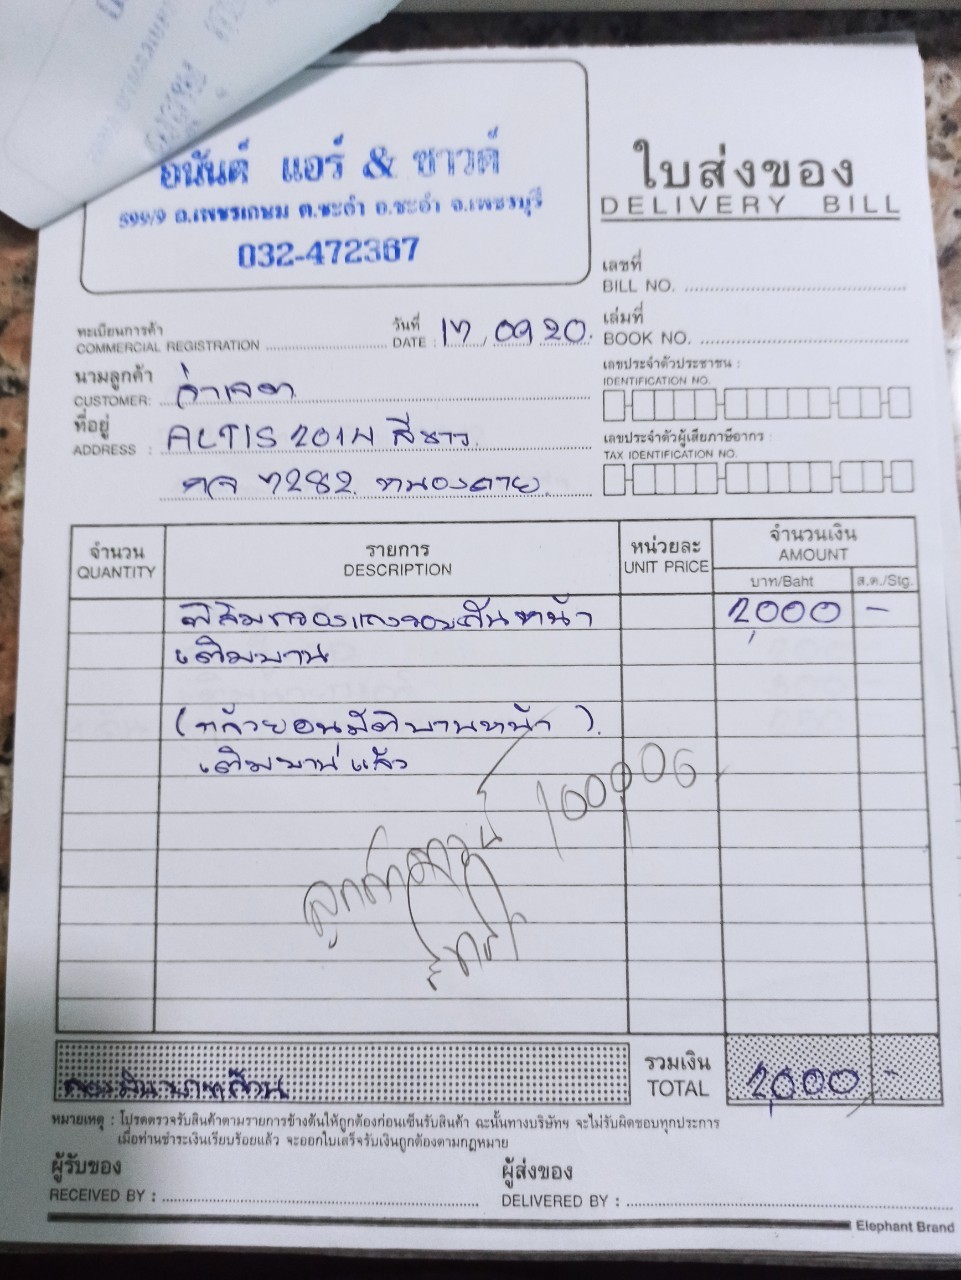 อนันต์ แอร์ & ซาวด์
599/9 ถ.เพชรเกษม ต.ชะอำ อ.ชะอำ จ.เพชรบุรี
032-472367
ใบส่งของ
DELIVERY BILL
เลขที่
BILL NO.
เล่มที่
BOOK NO.
ทะเบียนการค้า
COMMERCIAL REGISTRATION
วันที่
DATE : 17, 09 20.
นามลูกค้า
CUSTOMER:
เลขประจำตัวประชาชน :
IDENTIFICATION NO.
ที่อยู่
ADDRESS : ALTIS 2014 สีขาว
7282
เลขประจำตัวผู้เสียภาษีอากร :
TAX IDENTIFICATION NO.
จำนวน
QUANTITY
รายการ
DESCRIPTION
หน่วยละ
UNIT PRICE
จำนวนเงิน
AMOUNT
บาท/Baht
ส.ต./Stg.
ฟิล์มกรองแสงรถยนต์บานหน้า 2,000 -
เต็มบาน
เต็มบานแล้ว
สองพันบาทถ้วน
รวมเงิน
TOTAL 2,000 -
หมายเหตุ : โปรดตรวจรับสินค้าตามรายการข้างต้นให้ถูกต้องก่อนเซ็นรับสินค้า ฉะนั้นทางบริษัทฯ จะไม่รับผิดชอบทุกประการ
เมื่อท่านชำระเงินเรียบร้อยแล้ว จะออกใบเสร็จรับเงินถูกต้องตามกฎหมาย
ผู้รับของ
RECEIVED BY :
ผู้ส่งของ
DELIVERED BY :
Elephant Brand